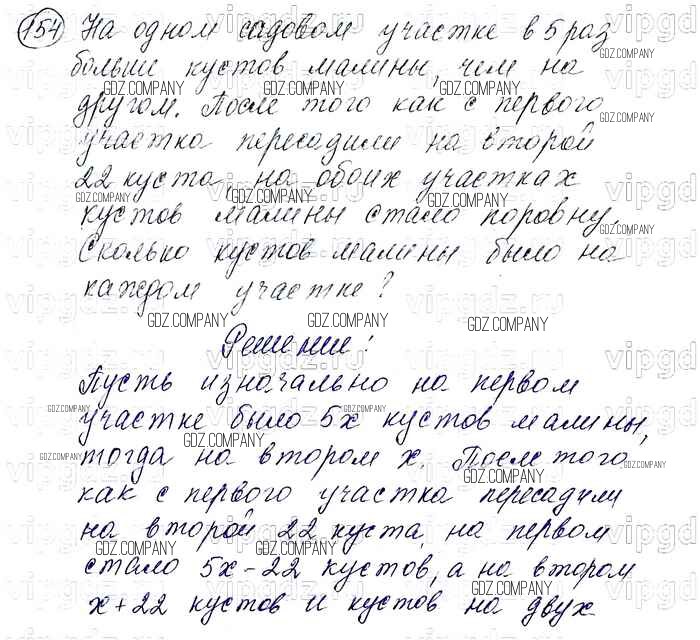 154 На одном садовом участке в 5 раз
больше кустов малины, чем на
другом. После того как с первого
участка пересадили на второй
22 куста, на обоих участках
кустов малины стало поровну.
Сколько кустов малины было на
каждом участке?
Решение:
Пусть изначально на первом
участке было 5х кустов малины,
тогда на втором х. После того,
как с первого участка пересадили
на второй 22 куста, на первом
стало 5х-22 кустов, а на втором
х+22 кустов и кустов на двух